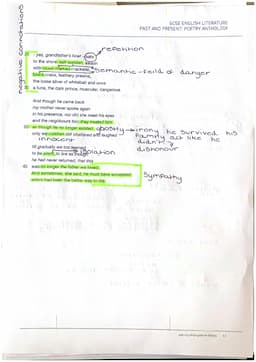 GCSE ENGLISH LITERATURE
PAST AND PRESENT: POETRY ANTHOLOGY
negative connotations
repetition
yes, grandfather's boat – safe
to the shore, salt-sodden, awash
with cloud-marked mackerel,
semantic field of danger
black crabs, feathery prawns,
the loose silver of whitebait and once
a tuna, the dark prince, muscular, dangerous.
And though he came back
my mother never spoke again
in his presence, nor did she meet his eyes
and the neighbours too, they treated him
as though he no longer existed,
irony he survived his
only we children still chattered and laughed
family act like he
innocent
didn't
dishonour
till gradually we too learned
to be silent, to live as though
isolation
he had never returned, that this
was no longer the father we loved.
And sometimes, she said, he must have wondered
which had been the better way to die.
Sympathy